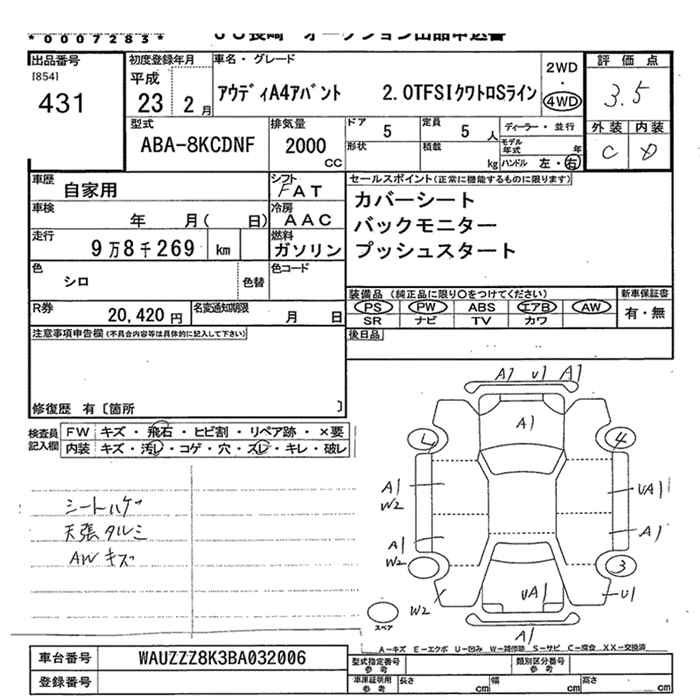 *0007283*
JU長崎 オークション出品申込書
出品番号
[854]
431
初度登録年月
平成
23 2月
車名・グレード
アウディA4アバント 2.0TFSIクワトロSライン
2WD
・
4WD
評価点
3.5
外装 内装
C D
型式
ABA-8KCDNF
排気量
2000
cc
ドア 5
定員 5 人
形状
積載 kg
ディーラー・並行
モデル年式 年
ハンドル 左・右
車歴
自家用
シフト
FAT
車検
年 月( 日)
冷房
AAC
走行
9万8千269 km
燃料
ガソリン
色
シロ
色替
色コード
セールスポイント(正常に機能するものに限ります)
カバーシート
バックモニター
プッシュスタート
装備品(純正品に限り○をつけてください)
PS PW ABS エアB AW
SR ナビ TV カワ
新車保証書
有・無
R券
20,420円
名変通知期限
月 日
後日品
注意事項申告欄(不具合内容等は具体的に記入して下さい)
修復歴 有〔箇所 〕
検査員
記入欄
FW キズ・飛石・ヒビ割・リペア跡・×要
内装 キズ・汚レ・コゲ・穴・スレ・キレ・破レ
シートハゲ
天張タルミ
AWキズ
A1 U1 A1
A1
4 4
A1
W2
UA1
A1
W2
A1
3
UA1
W2
U1
A1
スペア
A-キズ E-エクボ U-凹み W-補修跡 S-サビ C-腐食 XX-交換済
車台番号
WAUZZZ8K3BA032006
登録番号
型式指定番号
参考
類別区分番号
参考
車庫証明用
参考
長さ cm
幅 cm
高さ cm